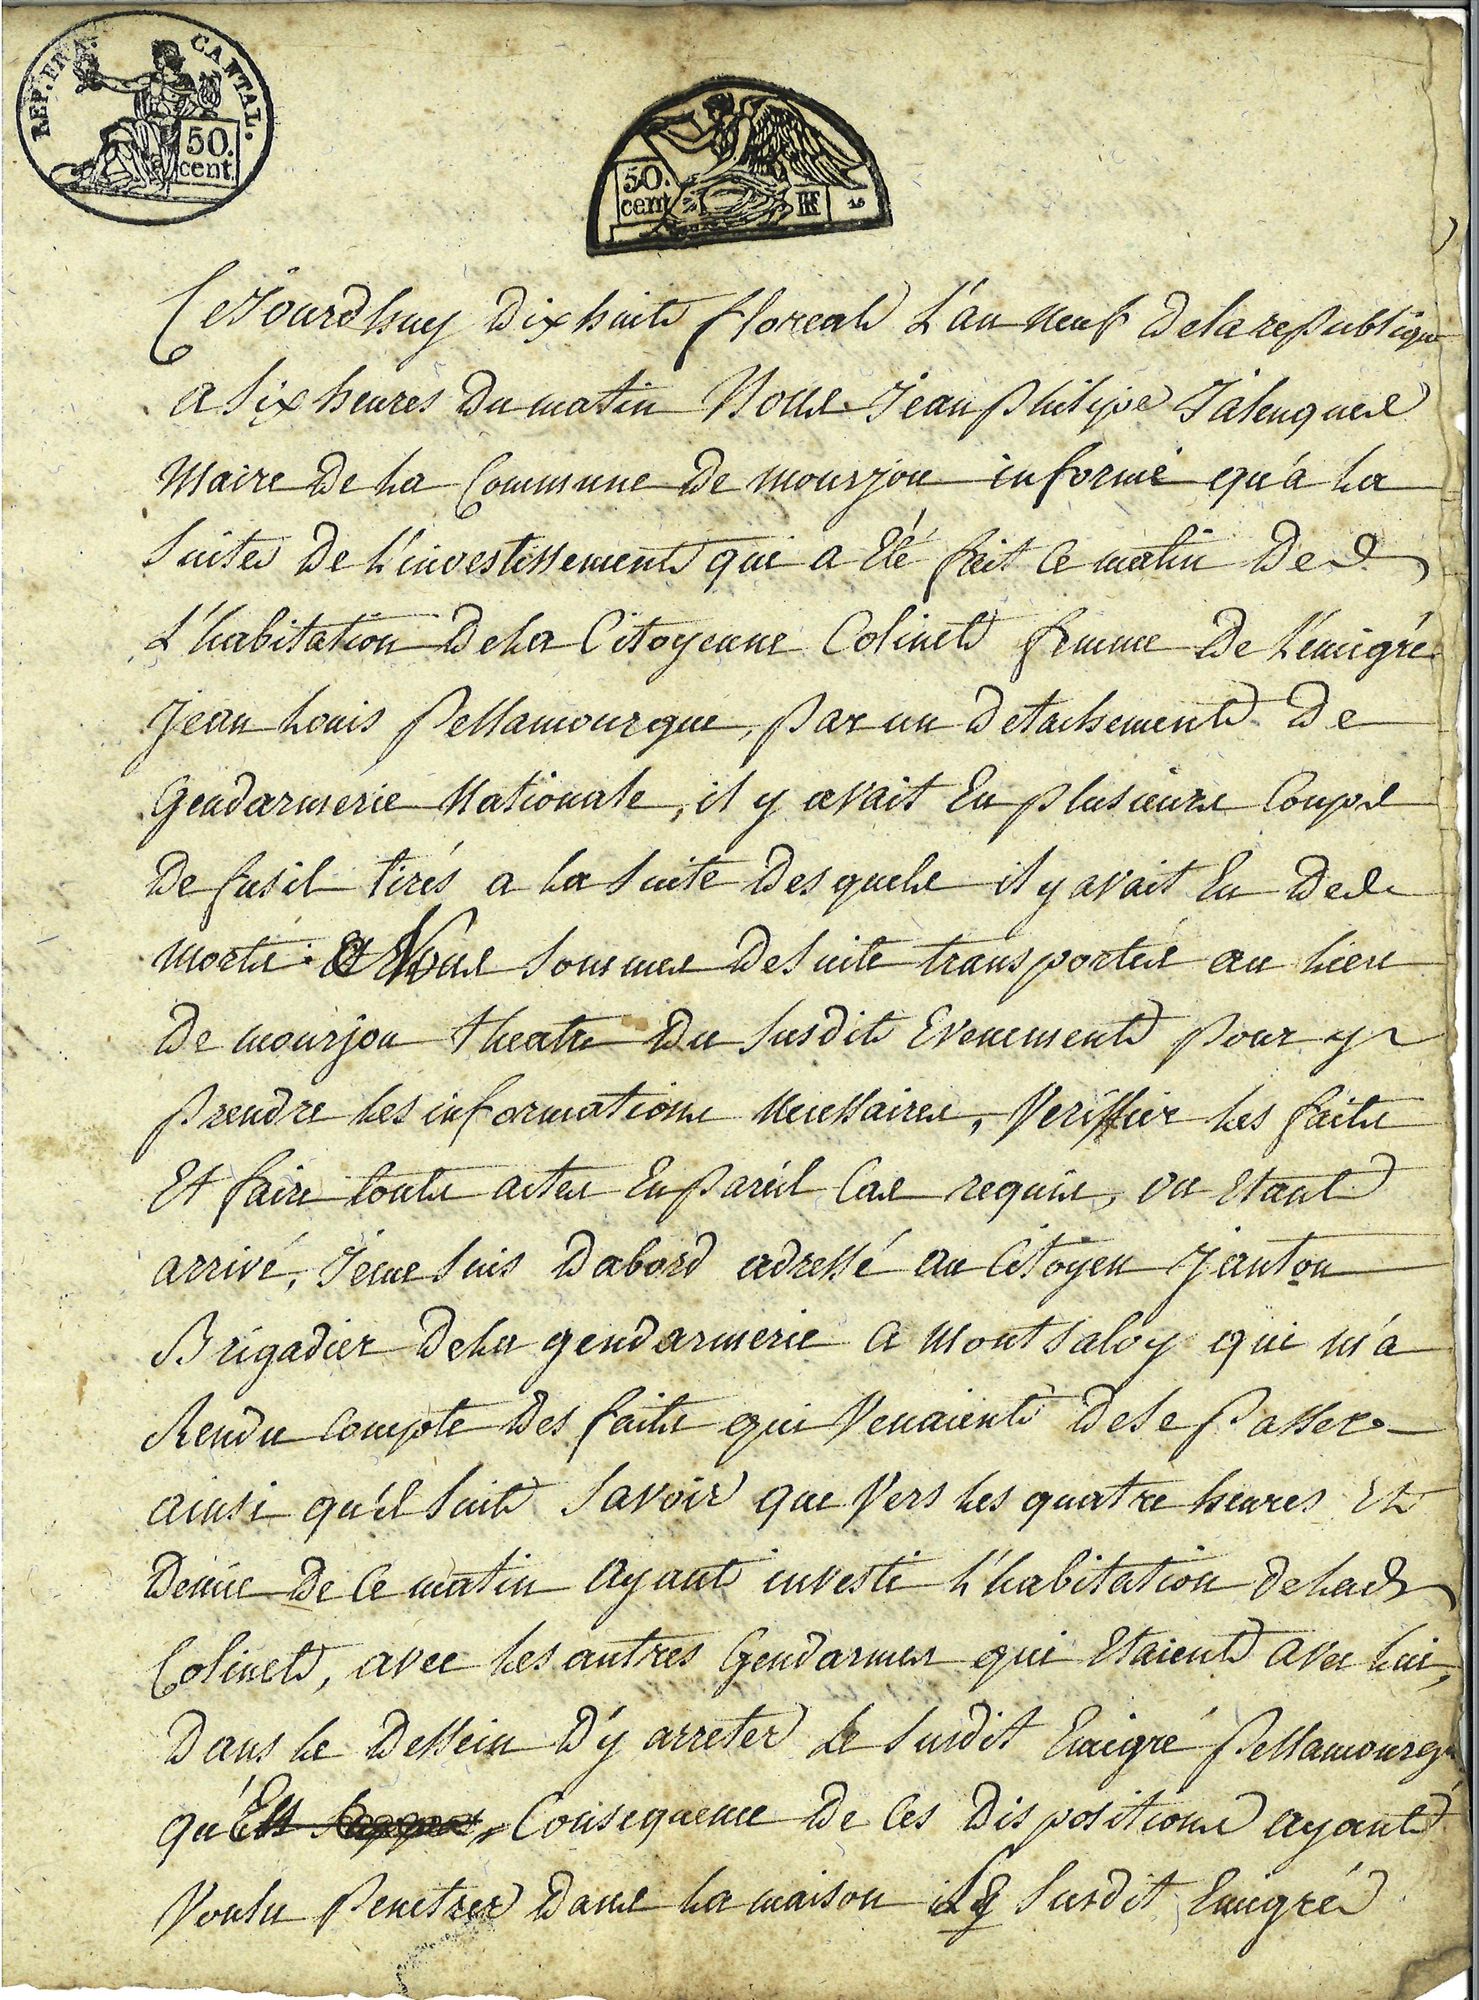 REP. FRA. CANTAL.
50.
cent.
50.
cent.
RF
Cejourdhuy dixhuit floreal L'an neuf de la republique
a six heures du matin Nous Jean philipe Jalenques
Maire de la Commune de mourjou informé qu'a la
Suite de L'investissement qui a été fait ce matin de
L'habitation de la Citoyenne Colinet femme de L'emigré
Jean Louis Pellamourgue, par un detachement de
Gendarmerie Nationale, il y avait Eu plusieurs Coups
de fusil tirés a la suite desquels il y avait Eu des
morts. Nous sommes de suite transportés au lieu
de mourjou theatre du susdit Evenement pour y
prendre les informations necessaires, veriffier les faits
Et faire touts actes En pareil Cas requis, ou Etant
arrivé, Je me suis dabord adressé au Citoyen Janton
Brigadier de la gendarmerie a Montsalvy qui m'a
Rendu compte des faits qui venaient de se passer
ainsi qu'il suit savoir que vers les quatre heures Et
demie de ce matin ayant investi L'habitation de lad
Colinet, avec les autres Gendarmes qui Etaient avec lui,
dans le dessein d'y arreter le susdit Emigré Pellamourgue
qu'En Consequence de ces dispositions ayant
voulu penetrer dans la maison Le susdit Emigré